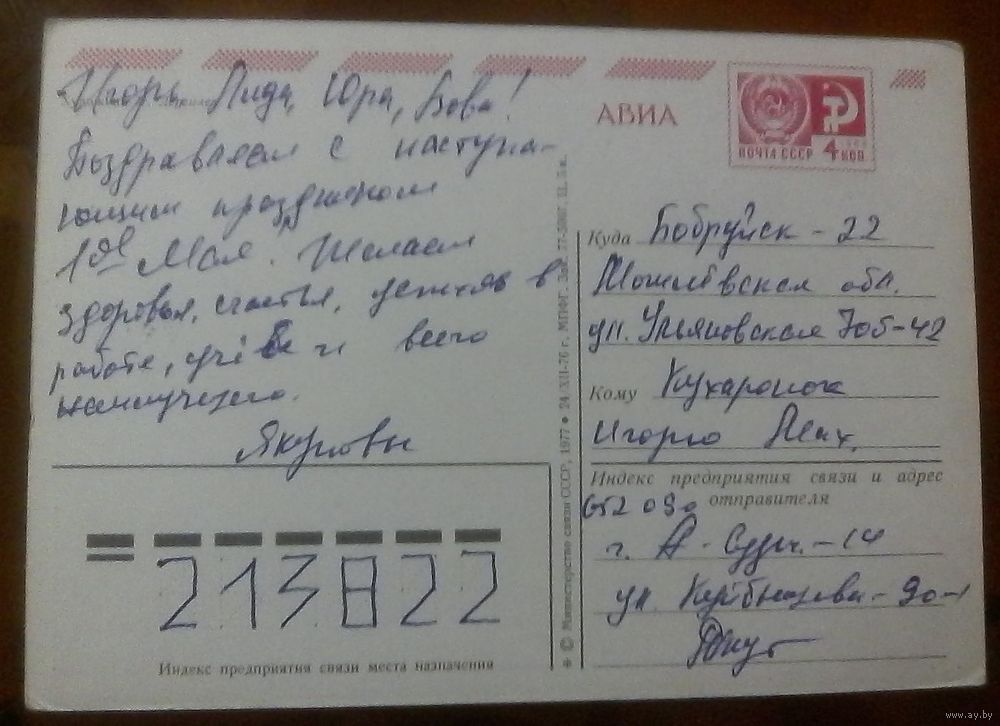 Игорь, Лида, Юра, Вова!
Поздравляем с наступа-
ющим праздником
1ое Мая. Желаем
здоровья, счастья, успехов в
работе, учёбе и всего
наилучшего.
Якуповы
АВИА
ПОЧТА СССР 4 КОП.
Куда Бобруйск - 22
Могилёвская обл.
ул. Ульяновская 705-42
Кому
Игорю
Индекс предприятия связи и адрес
отправителя
652090
г. А- Судж.-14
ул. Куйбышева - 90-1
213822
Индекс предприятия связи места назначения
© Министерство связи СССР, 1977 • 24/XII-76 г. МПФГ.
www.ay.by